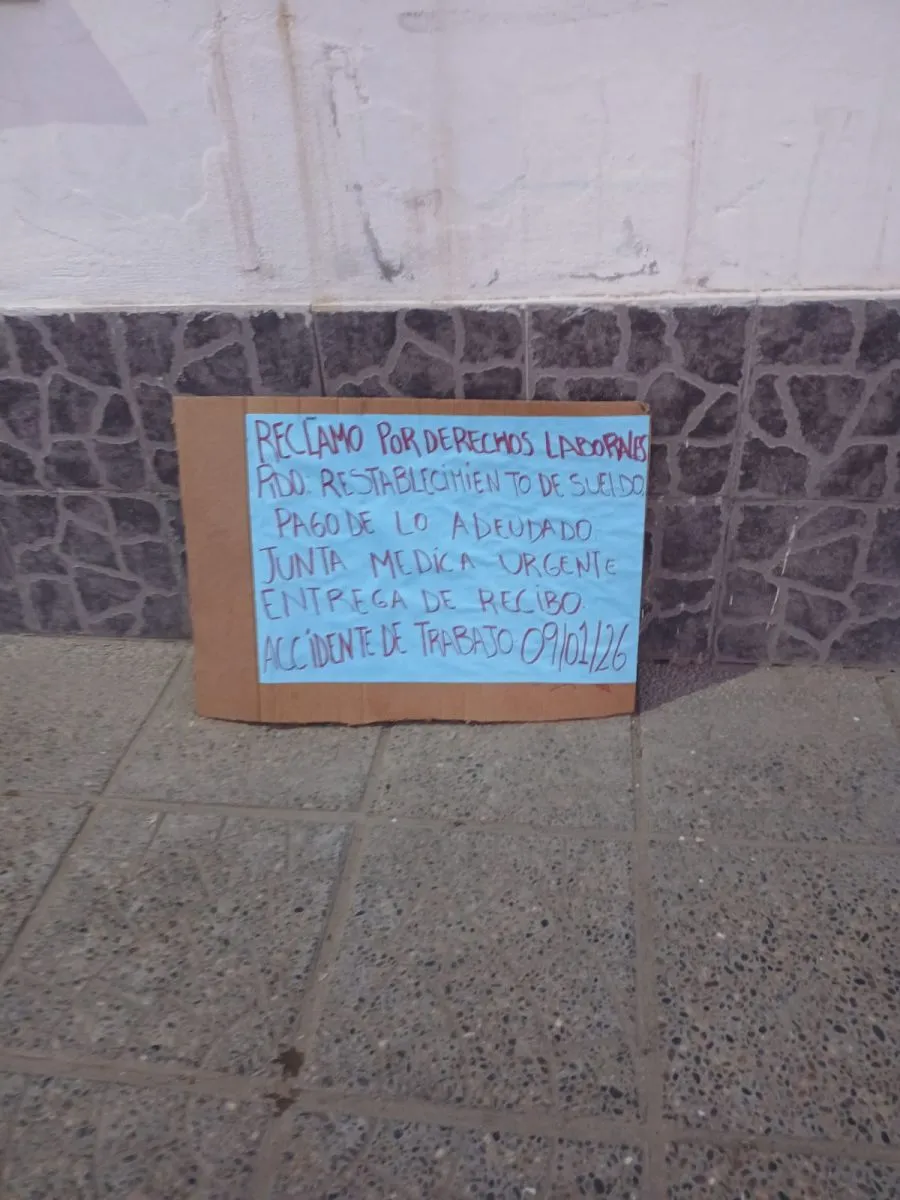 RECLAMO POR DERECHOS LABORALES
PIDO: RESTABLECIMIENTO DE SUELDO.
PAGO DE LO ADEUDADO
JUNTA MEDICA URGENTE
ENTREGA DE RECIBO.
ACCIDENTE DE TRABAJO 09/01/26